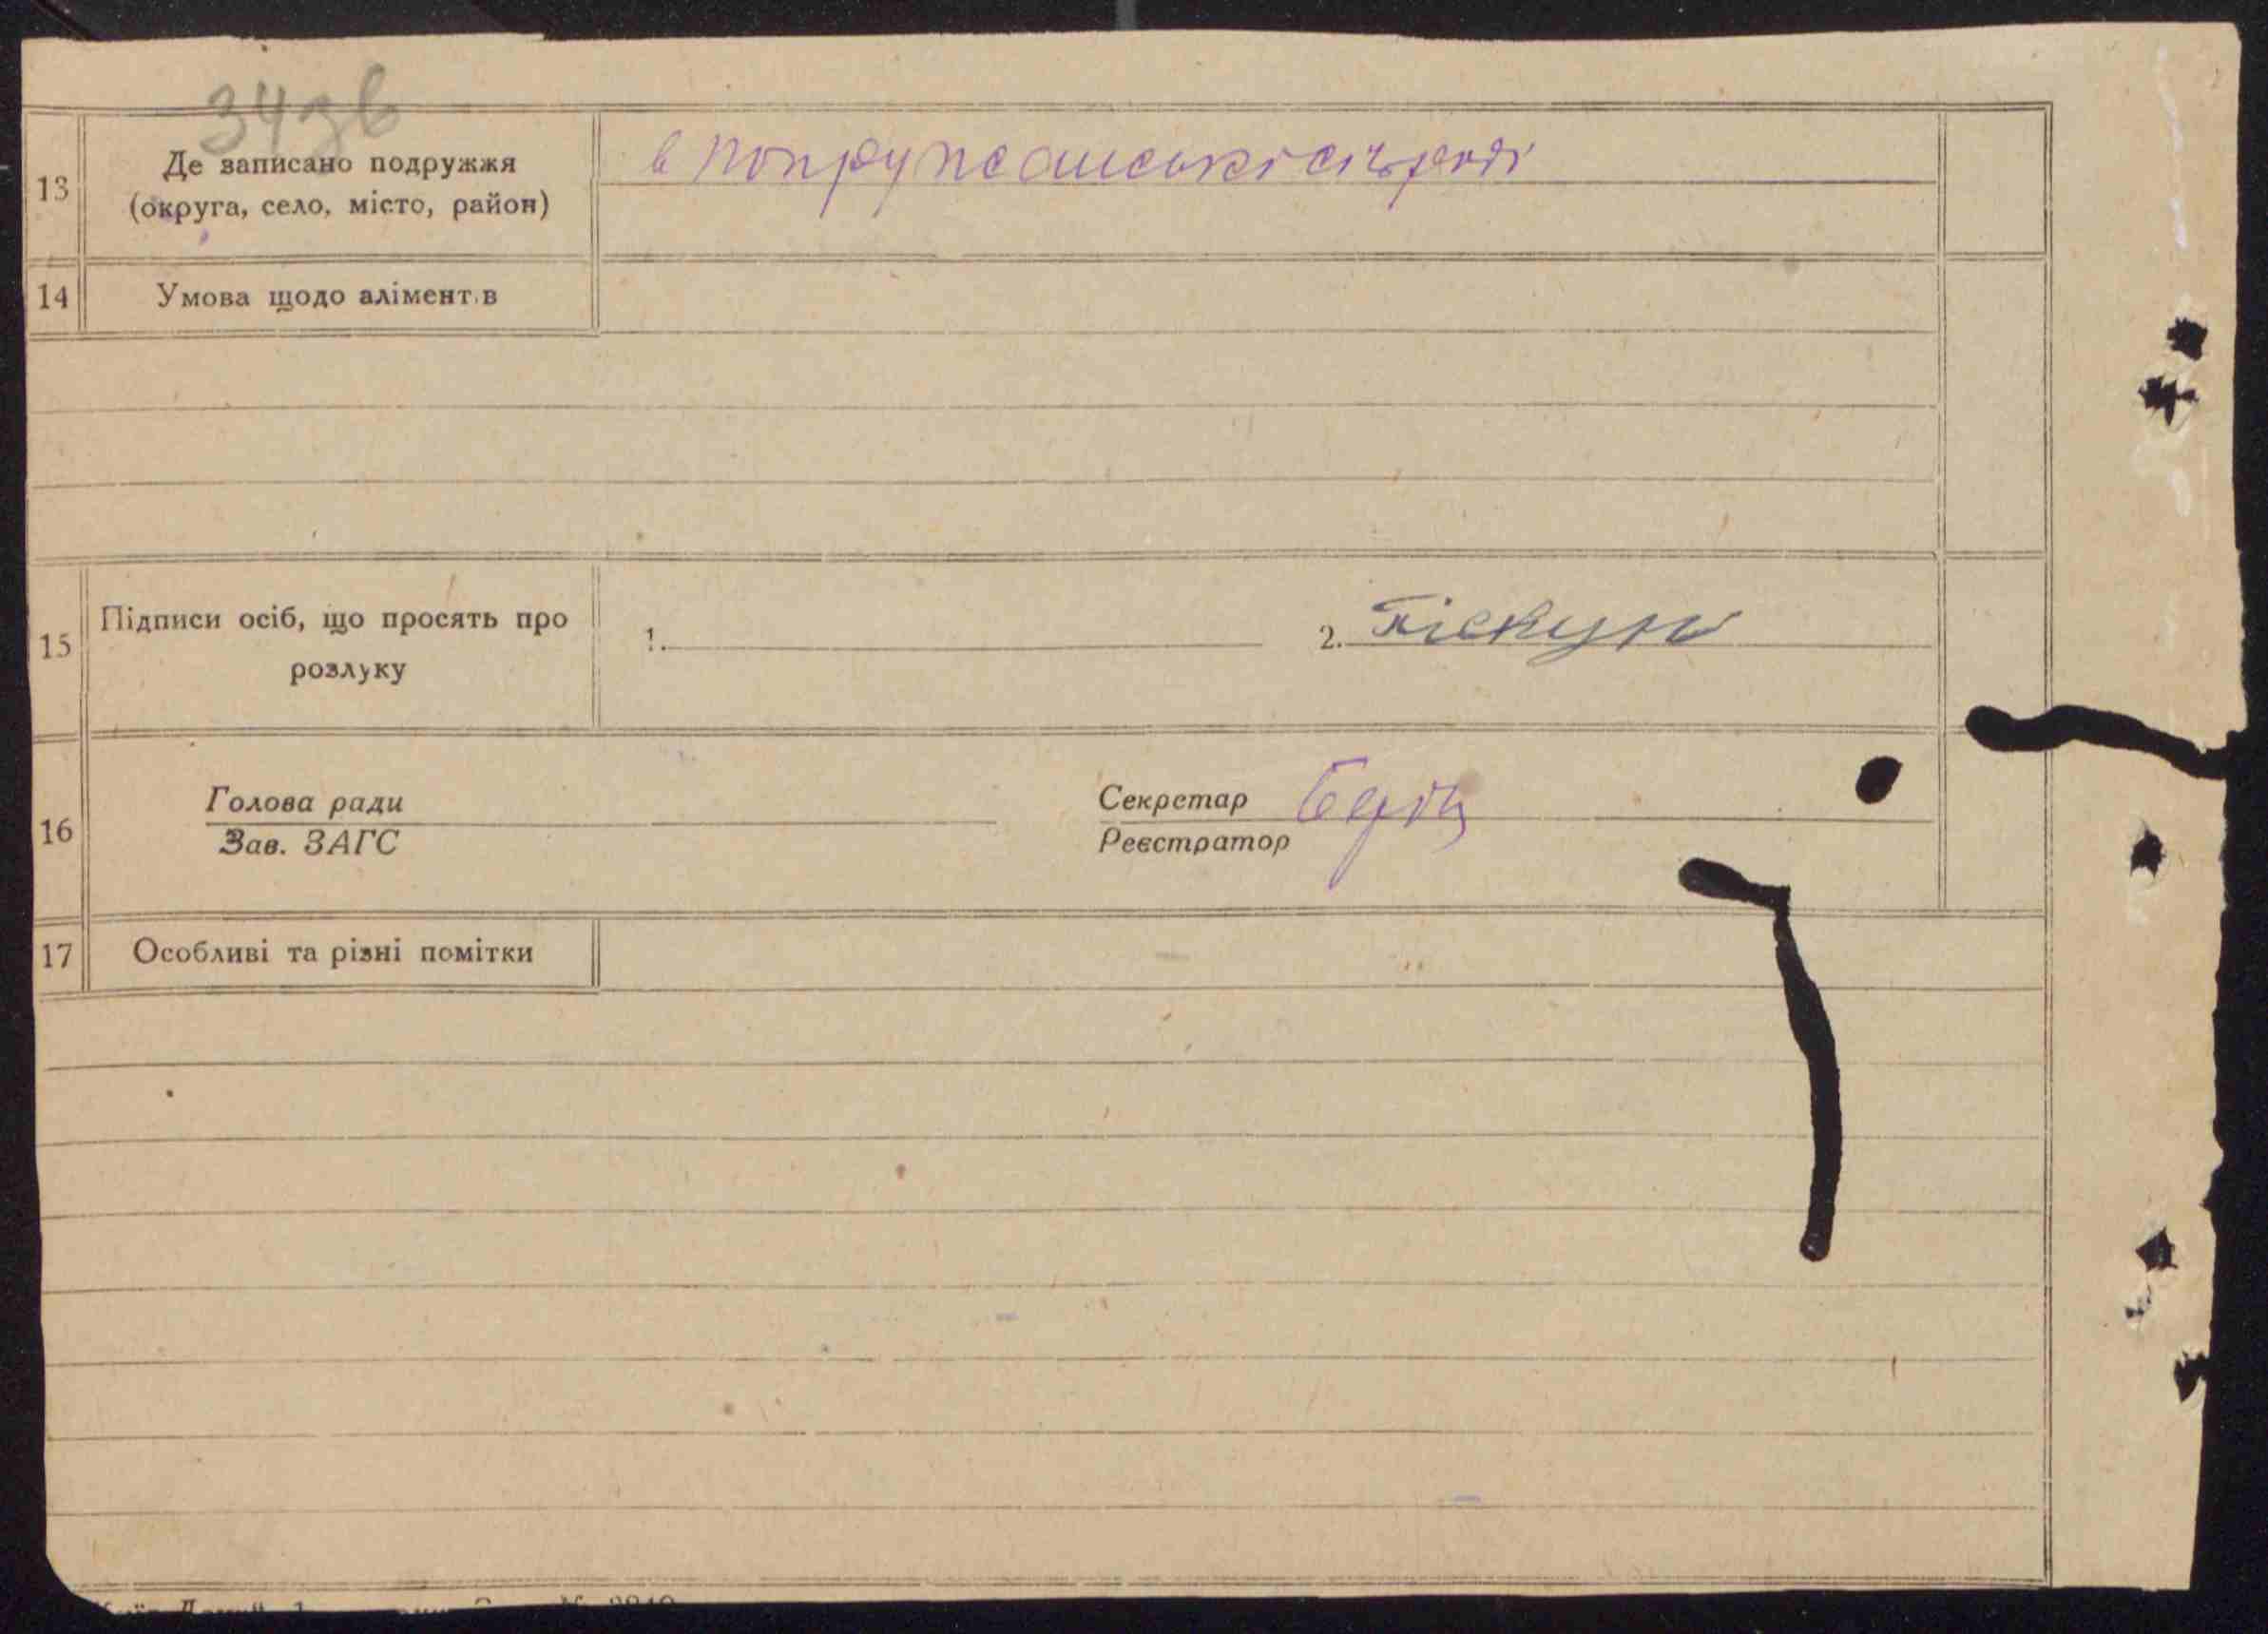 34зв
13
Де записано подружжя
(округа, село, місто, район)
в Попружанські сільраді
14
Умова щодо алімент.в
15
Підписи осіб, що просять про
розлуку
1.
2. Піскун
16
Голова ради
Зав. ЗАГС
Секретар
Реєстратор
17
Особливі та різні помітки